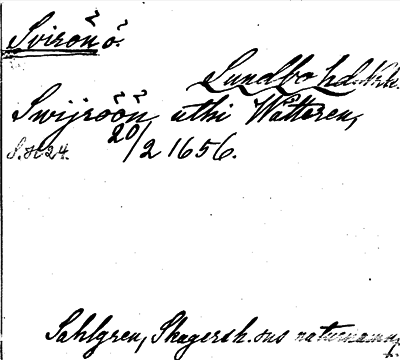 Svirön ö.
Lundbo hd. Nrk.
Swijröön uthi Wätteren,
20/2 1656.
Sahlgren, Skagersh. ons naturnamn